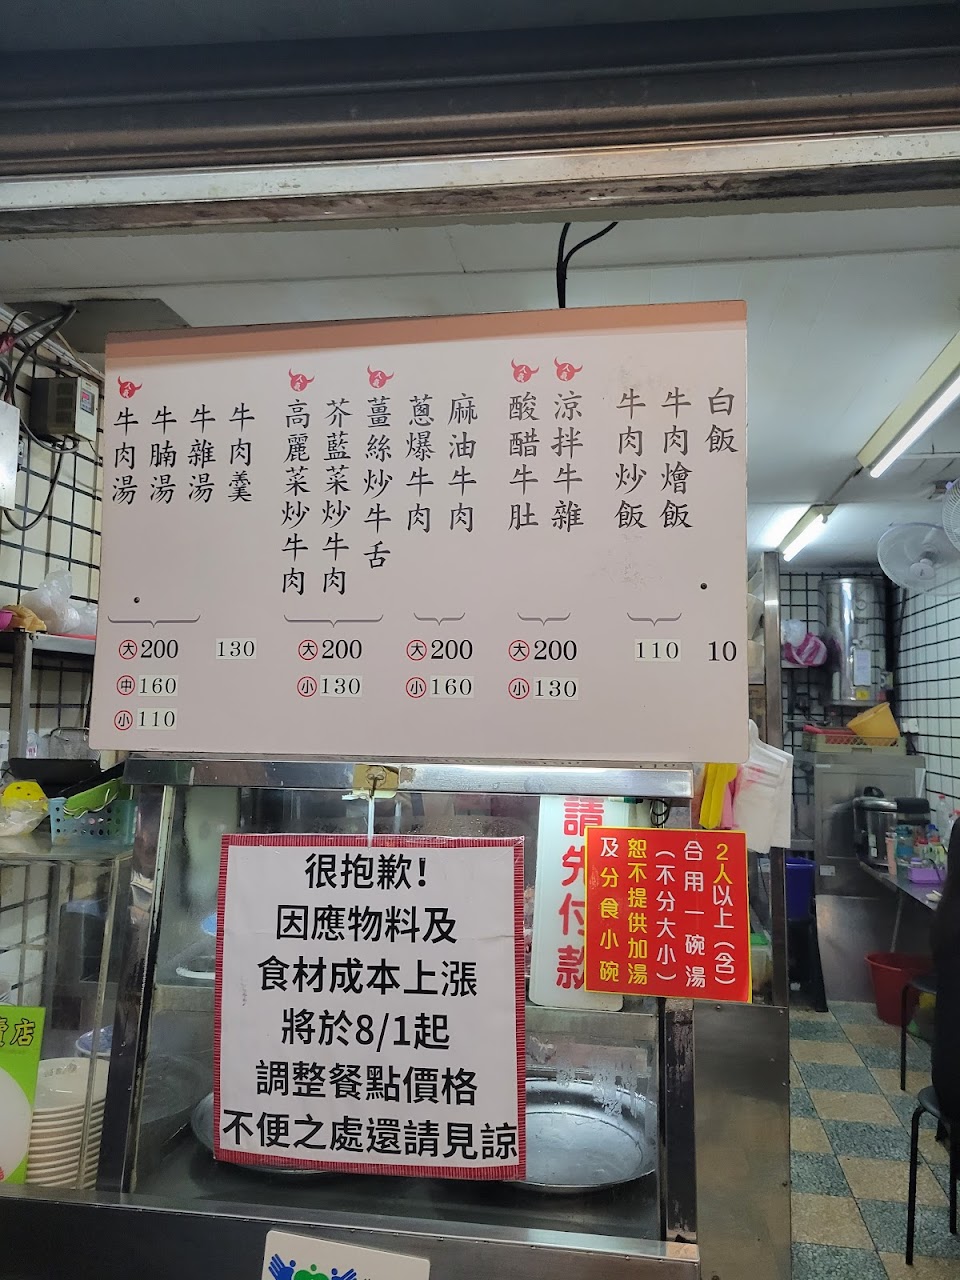 牛肉湯
牛腩湯
牛雜湯
牛肉羹
高麗菜炒牛肉
芥藍菜炒牛肉
薑絲炒牛舌
蔥爆牛肉
麻油牛肉
酸醋牛肚
涼拌牛雜
牛肉炒飯
牛肉燴飯
白飯
大200
中160
小110
130
大200
小130
大200
小160
大200
小130
110
10
很抱歉!
因應物料及
食材成本上漲
將於8/1起
調整餐點價格
不便之處還請見諒
請先付款
2人以上(含)
合用一碗湯
(不分大小)
恕不提供加湯
及分食小碗
店